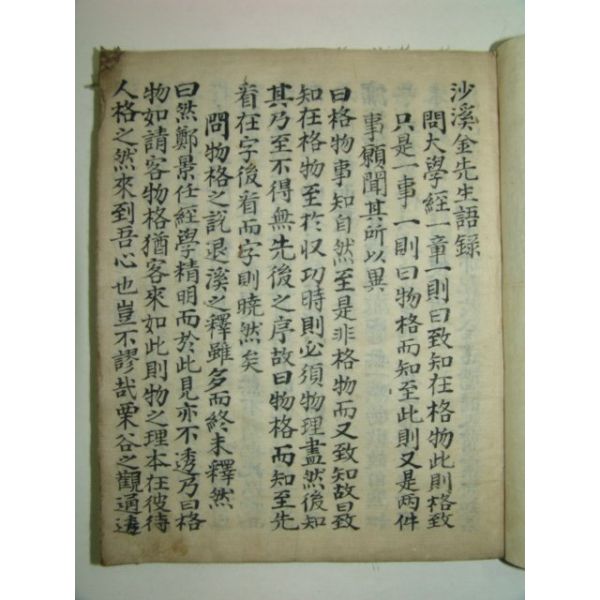 沙溪金先生語錄
問大學經一章一則曰致知在格物此則格致
只是一事一則曰物格而知至此則又是两件
事願聞其所以異
曰格物事知自然至是非格物而又致知故曰致
知在格物至於收功時則必須物理盡然後知
其乃至不得無先後之序故曰物格而知至先
看在字後看而字則曉然矣
問物格之說退溪之釋雖多而終未釋然
曰然鄭景任經學精明而於此見亦不透乃曰格
物如請客物格猶客來如此則物之理本在彼待
人格之然來到吾心也豈不謬哉栗谷之觀通透